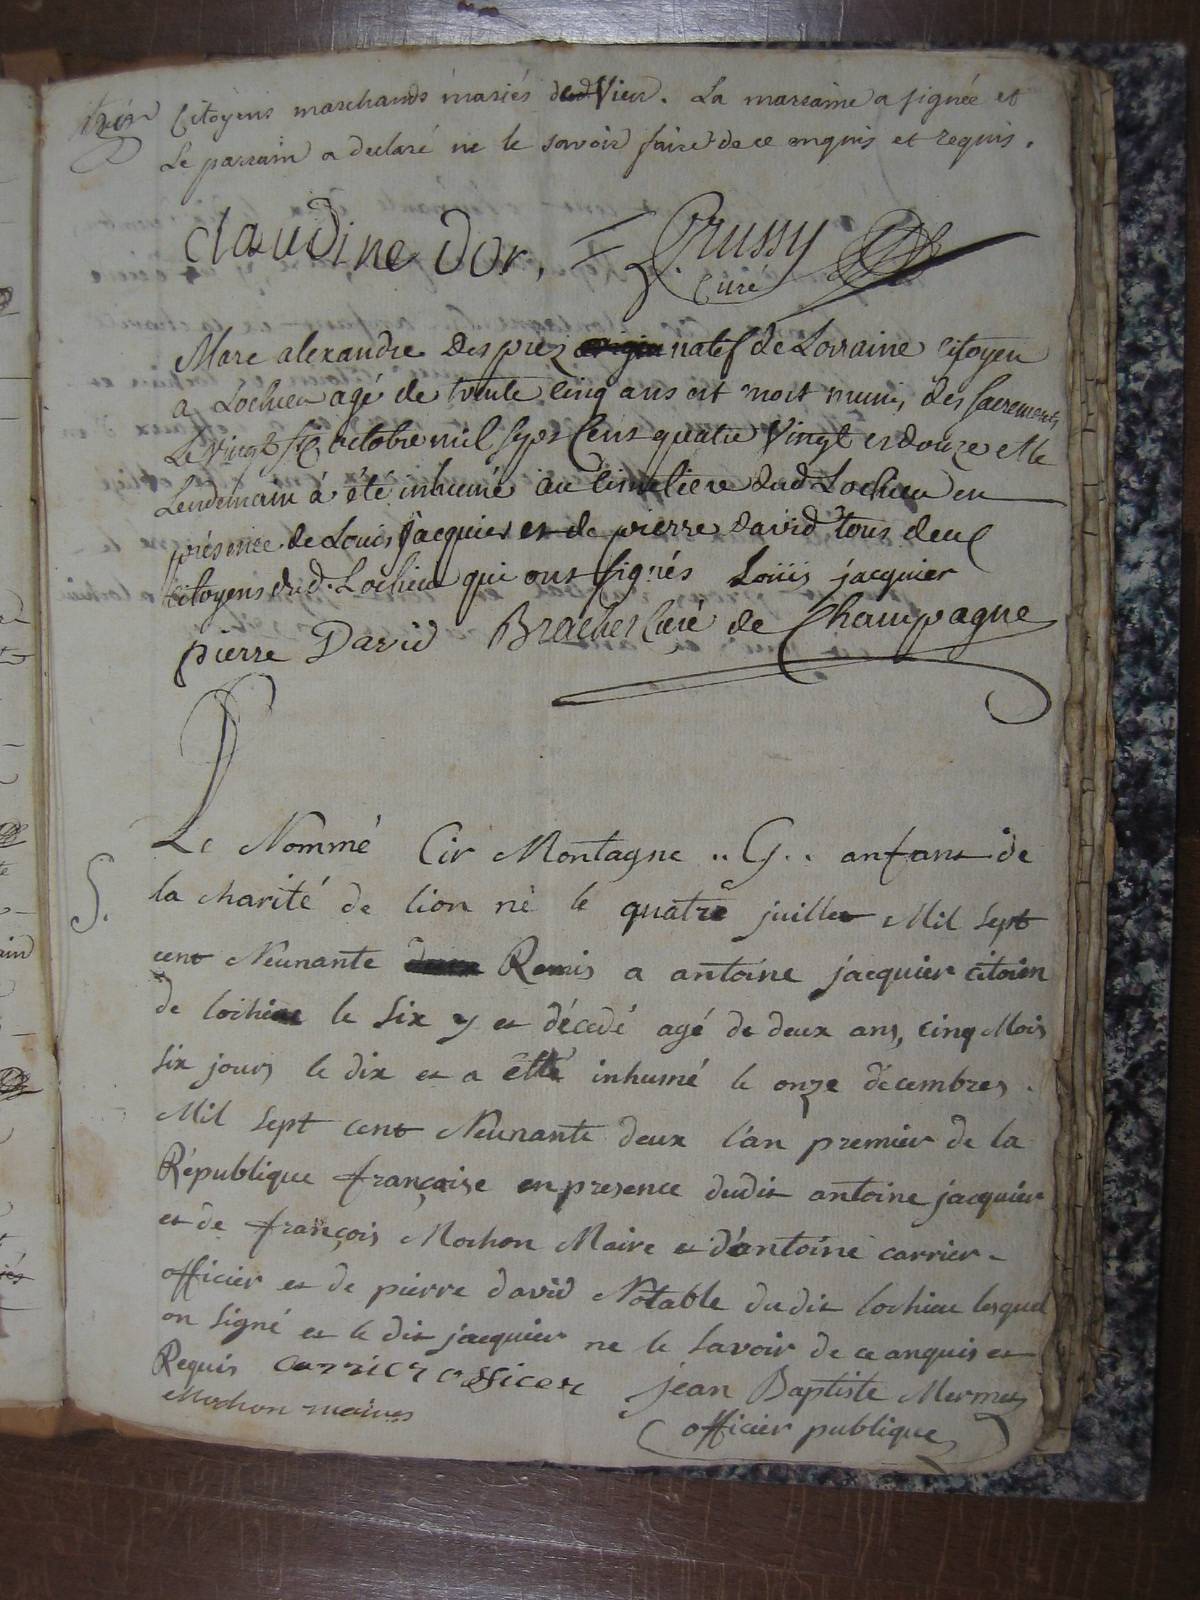 Citoyens marchands mariés dud Vieu. La marraine a signée et
Le parrain a declaré ne le savoir faire de ce enquis et requis.
claudine dor. Crussy
Curé
Marc alexandre Desprez natif de Lorraine citoyen
a Lochieu agé de trente cinq ans est mort muni des sacrements
Le vingt six octobre mil sept cens quatre vingt et douze et le
Lendemain à été inhumé au cimetiere dud Lochieu en
présence de Louis Jacquier et de pierre david tous deux
citoyens dud. Lochieu qui ont signés Loüis jacquier
pierre David Brachet Curé de Champagne
Le Nommé Cir Montagne .. G.. anfant de
la charité de lion né le quatre juillet Mil Sept
5.
cent Neunante Remis a antoine jacquier citoien
de lochieu le Six y et décedé agé de deux ans, cinq Mois
six jours le dix et a etté inhumé le onze décembres.
Mil Sept cent Neunante deux l'an premier de la
République française en presence dudit antoine jacquier
et de françois Mochon Maire et d'antoine carrier
officier et de pierre david Notable dudit lochieu lesquel
on signé et le dit jacquier ne le Savoir de ce anquis et
Requis carrier officer jean Baptiste Mermet
Mochon maires officier publique